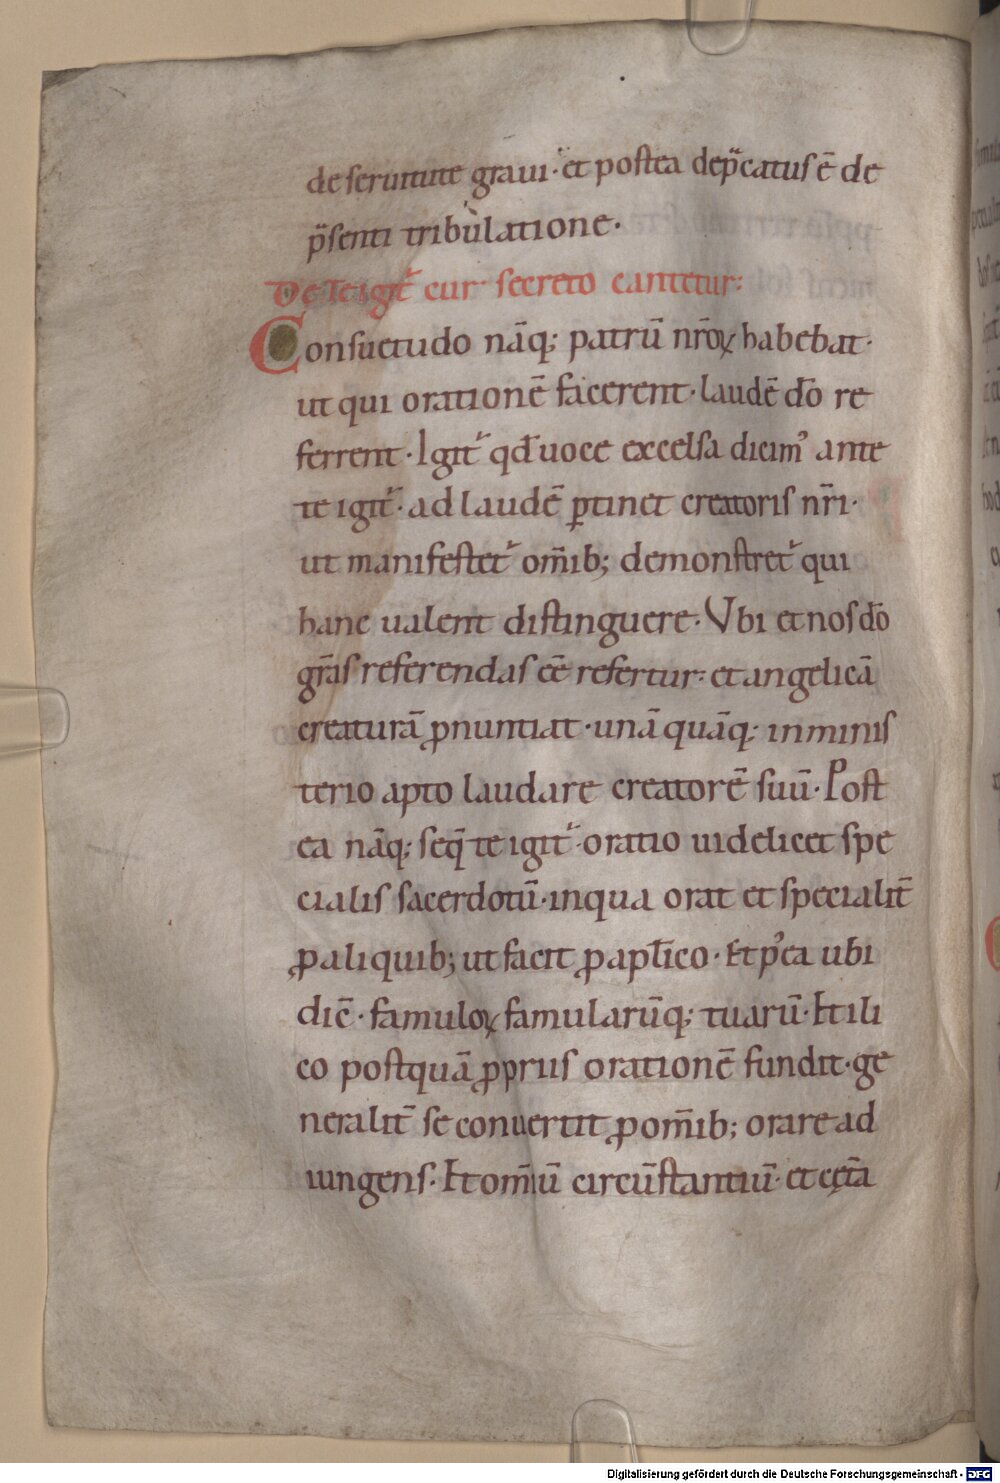 de seruitute graui· et postea dep̄catus ē de
p̄senti tribulatione·
De Te igit᷑ cur secreto cantetur:
Consuetudo nāq; patrū nr̄oꝝ habebat·
ut qui orationē facerent· laudē dō re
ferrent· Igit᷑ qd̄ uoce excelsa dicimꝰ ante
te igit᷑· ad laudē ꝑtinet creatoris nr̄i·
ut manifestet᷑ om̄ib; demonstret᷑ qui
hanc ualent distinguere· Vbi et nos dō
gr̄as referendas eē refertur: et angelicā
creaturā ꝓnuntiat· unā quāq; in minis
terio apto laudare creatorē suū· Post
ea nāq; seq̄ te igit᷑· oratio uidelicet spe
cialis sacerdotū· in qua orat et specialit̄
ꝓ aliquib; ut facit ꝓ apl̄ico· Et p̛ea ubi
dic̄· famuloꝝ famularūq; tuarū· Et ili
co postquā ꝓpriis orationē fundit· ge
neralit̄ se conuertit ꝓ om̄ib; orare ad
iungens· Et om̄iū circūstantiū· et cęt̄a
Digitalisierung gefördert durch die Deutsche Forschungsgemeinschaft - DFG